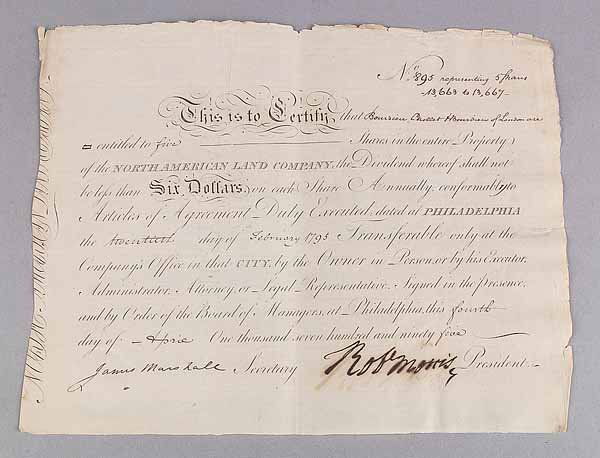 No. 895 representing 5 Shares
13,663 to 13,667
This is to Certify, that Bourdieu Chollet & Bourdieu of London are
entitled to five Shares in the entire Property
of the NORTH AMERICAN LAND COMPANY, the Dividend whereof shall not
be less than Six Dollars, on each Share Annually, conformably to
Articles of Agreement Duly Executed, dated at PHILADELPHIA
the twentieth day of February 1795 Transferable only at the
Company's Office in that CITY, by the Owner in Person, or by his Executor,
Administrator, Attorney, or Legal Representative. Signed in the Presence,
and by Order of the Board of Managers, at Philadelphia, this fourth
day of April One thousand seven hundred and ninety five
James Marshall Secretary Rob Morris, President